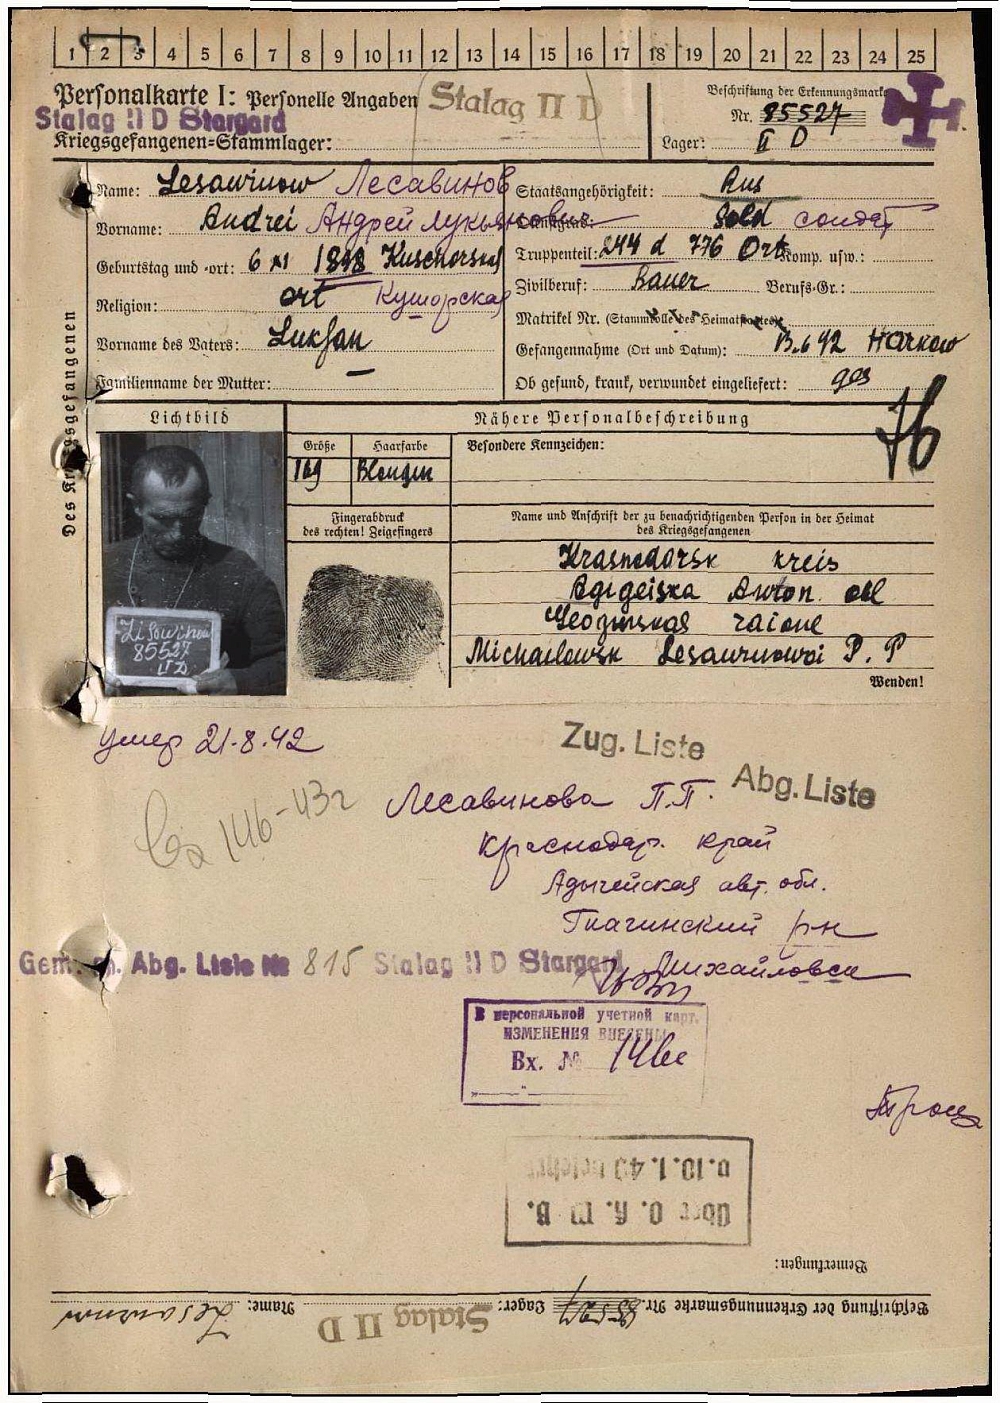 1 2 3 4 5 6 7 8 9 10 11 12 13 14 15 16 17 18 19 20 21 22 23 24 25
Personalkarte I: Personelle Angaben
Stalag II D
Beschriftung der Erkennungsmarke
Stalag II D Stargard
Nr. 85527
Kriegsgefangenen-Stammlager:
Lager: II D
Des Kriegsgefangenen
Name: Lesawinow Лесавинов
Staatsangehörigkeit: Rus
Vorname: Andrei Андрей Лукьянович
Dienstgrad: Sold солдат
Geburtstag und -ort: 6 XI 1898 Kuschorskaj
Truppenteil: 244 d 776 Ort Komp. usw.:
Religion: ort Кушорская
Zivilberuf: Bauer Berufs-Gr.:
Matrikel Nr. (Stammrolle des Heimatstaates)
Vorname des Vaters: Lukjan
Gefangennahme (Ort und Datum): 13.6 42 Harkow
Familienname der Mutter:
Ob gesund, krank, verwundet eingeliefert: ges
Lichtbild
Nähere Personalbeschreibung
76
Größe Haarfarbe Besondere Kennzeichen:
169
Fingerabdruck
des rechten! Zeigefingers
Name und Anschrift der zu benachrichtigenden Person in der Heimat
des Kriegsgefangenen
Krasnodarsk kreis
Michaelowsk P. P
85527
II D
Wenden!
умер 21.8.42
Zug. Liste
Abg. Liste
Лесавинова П.П.
146-43г
Краснодар. край
Адыгейская авт. обл.
Гиагинский р-н
Abg. Liste № 815 Stalag II D Stargard
Михайловск
В персональной учетной карт.
ИЗМЕНЕНИЯ ВНЕСЕНЫ
Вх. №
über O. K. W. B.
v. 10. 1. 40 belehrt
Bemerkungen:
Beschriftung der Erkennungsmarke Nr. 85527 Lager: Stalag II D Name: Lesawinow